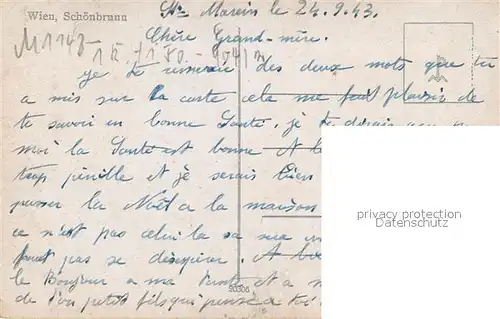 Wien, Schönbrunn
St Marein le 24.9.43.
Chère Grand-mère.
je te remercie des deux mots que tu
a mis sur la carte cela me fait plaisir de
te savoir en bonne Santé. je te dirais
moi la Santé est bonne A
trop pénible et je serais bien
passer la Noël a la maison
ce n'est pas celui la sa sera
faut pas se désespérer. A
le Bonjour a ma et a
de ton petit fils qui pense a toi
20306
privacy protection
Datenschutz